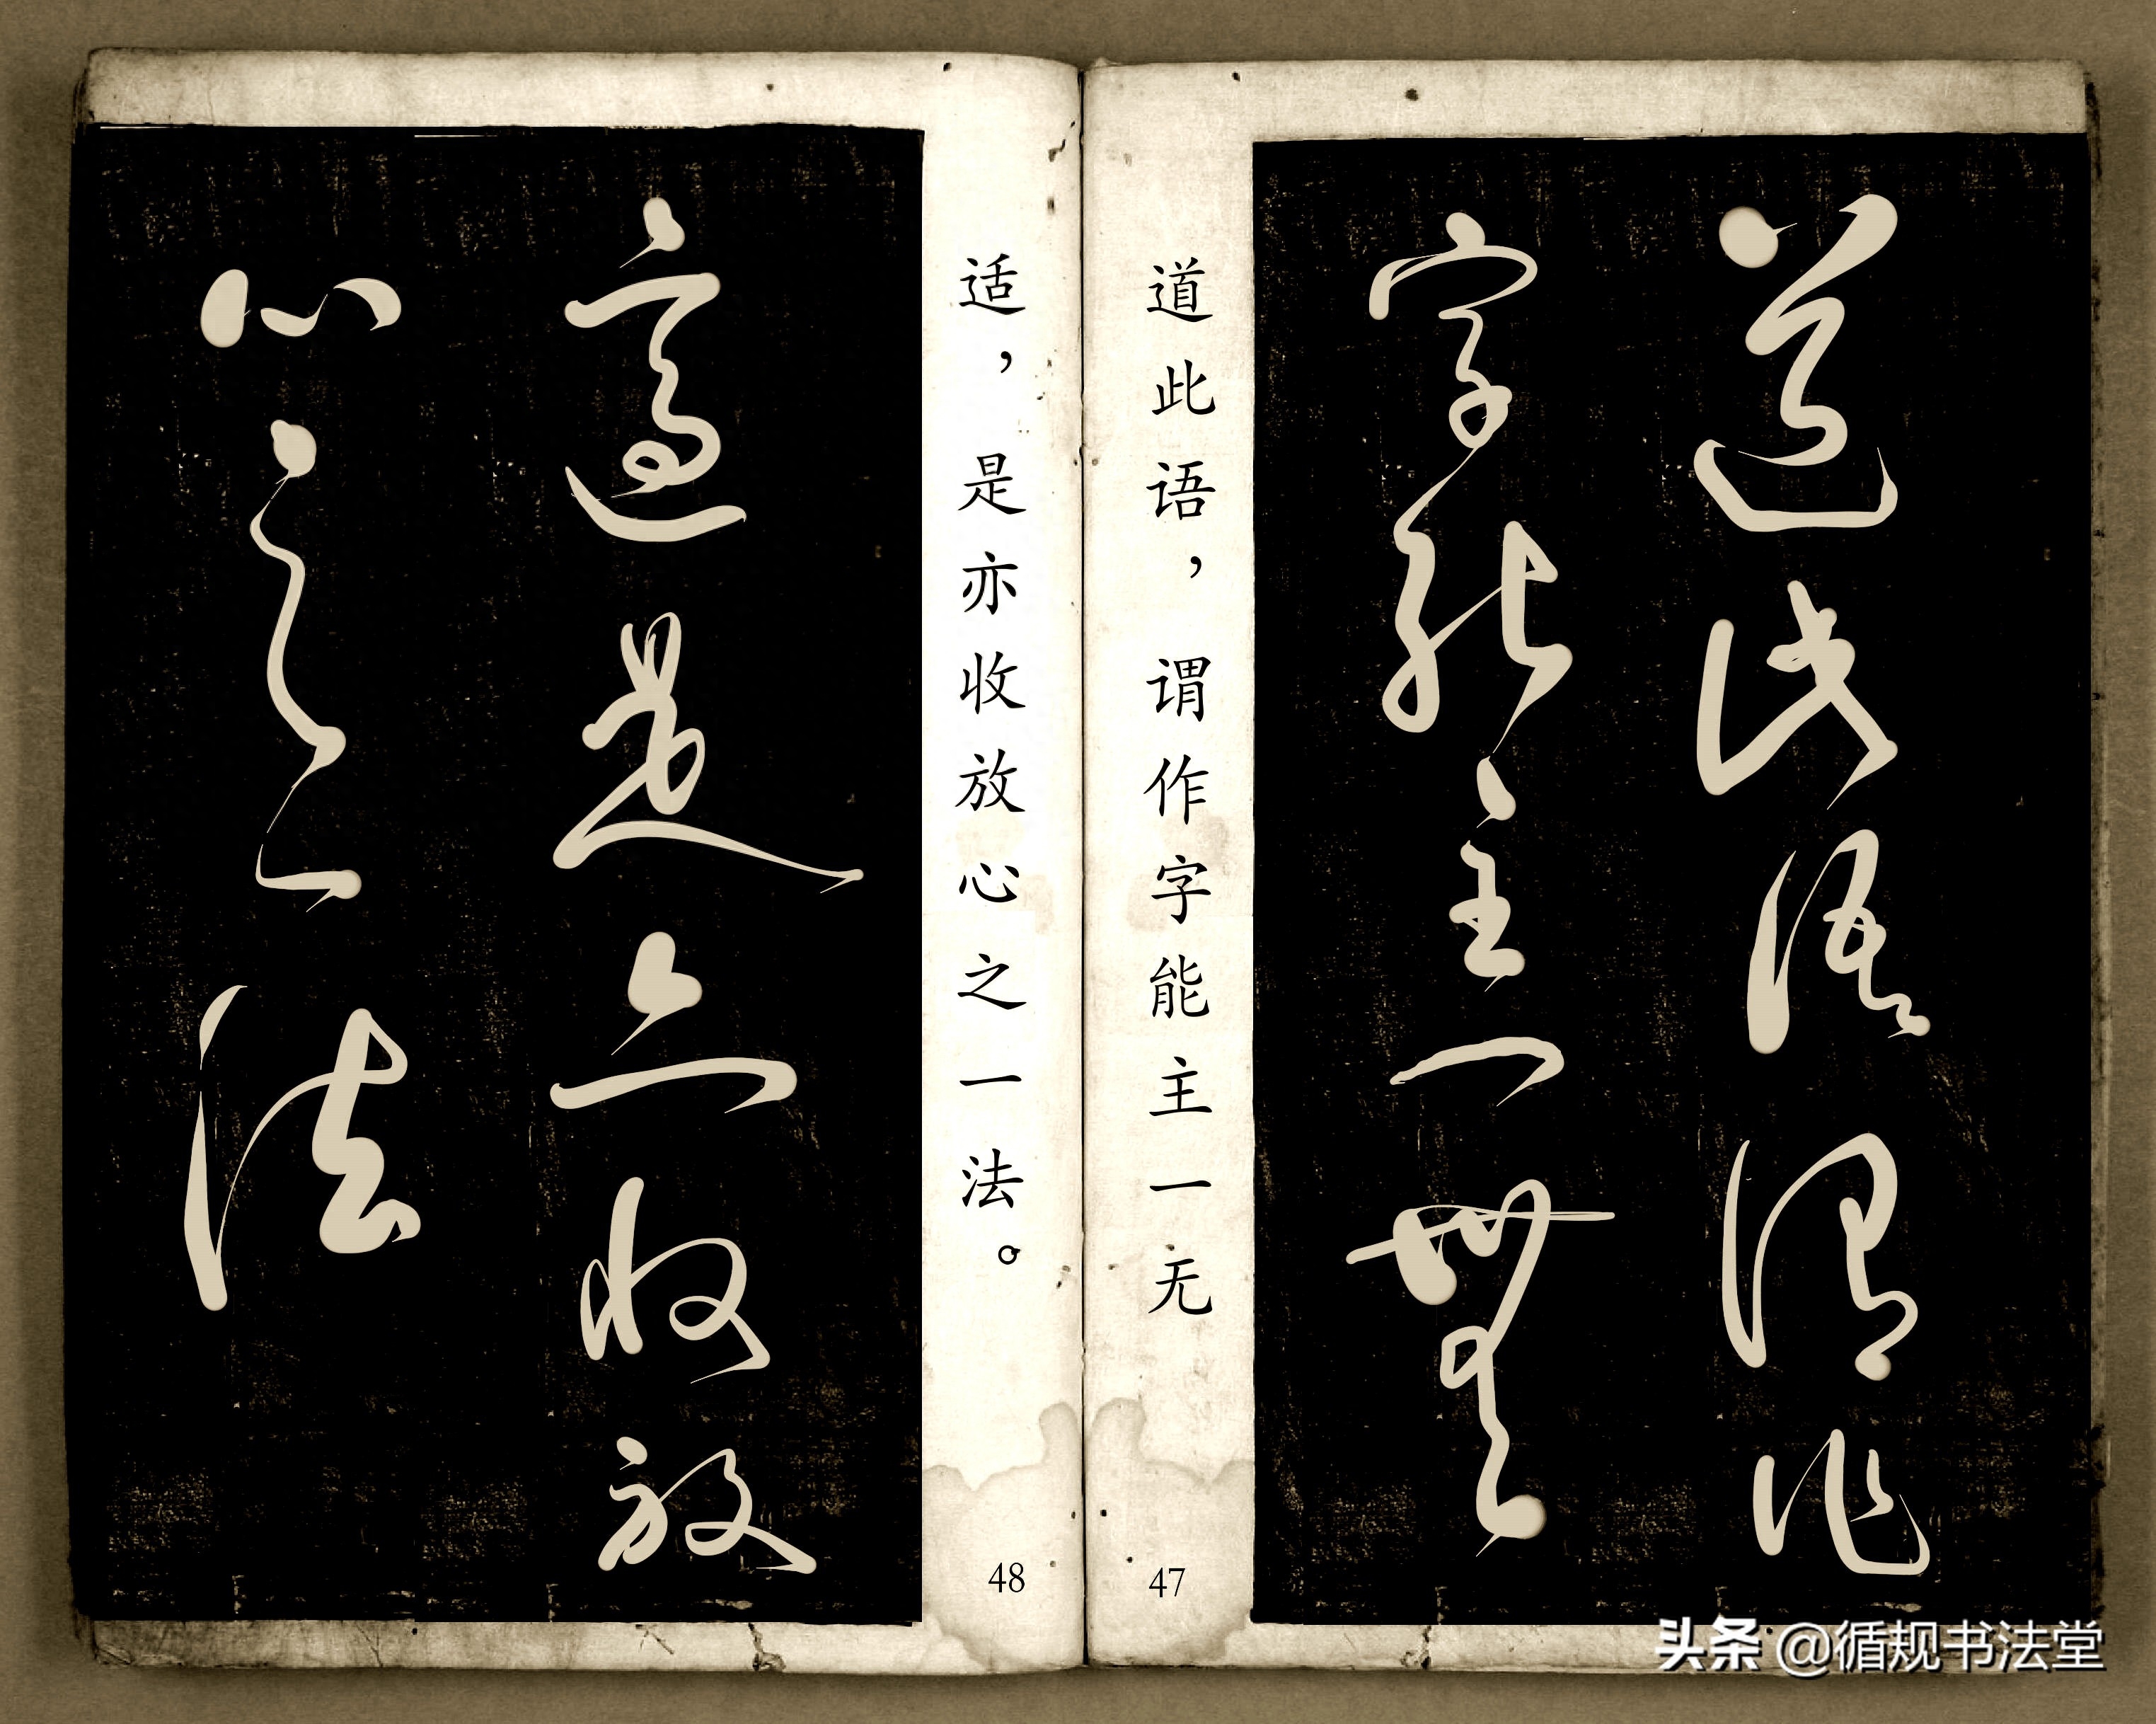 道此语谓作
字能主一無
道此语，谓作字能主一无
47
适，是亦收放心之一法。
48
適是亦收放
心之一法
头条 @循规书法堂